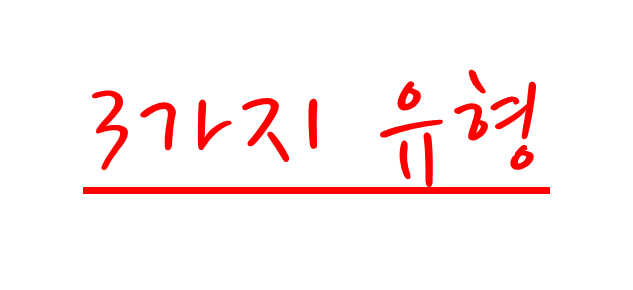 3가지 유형